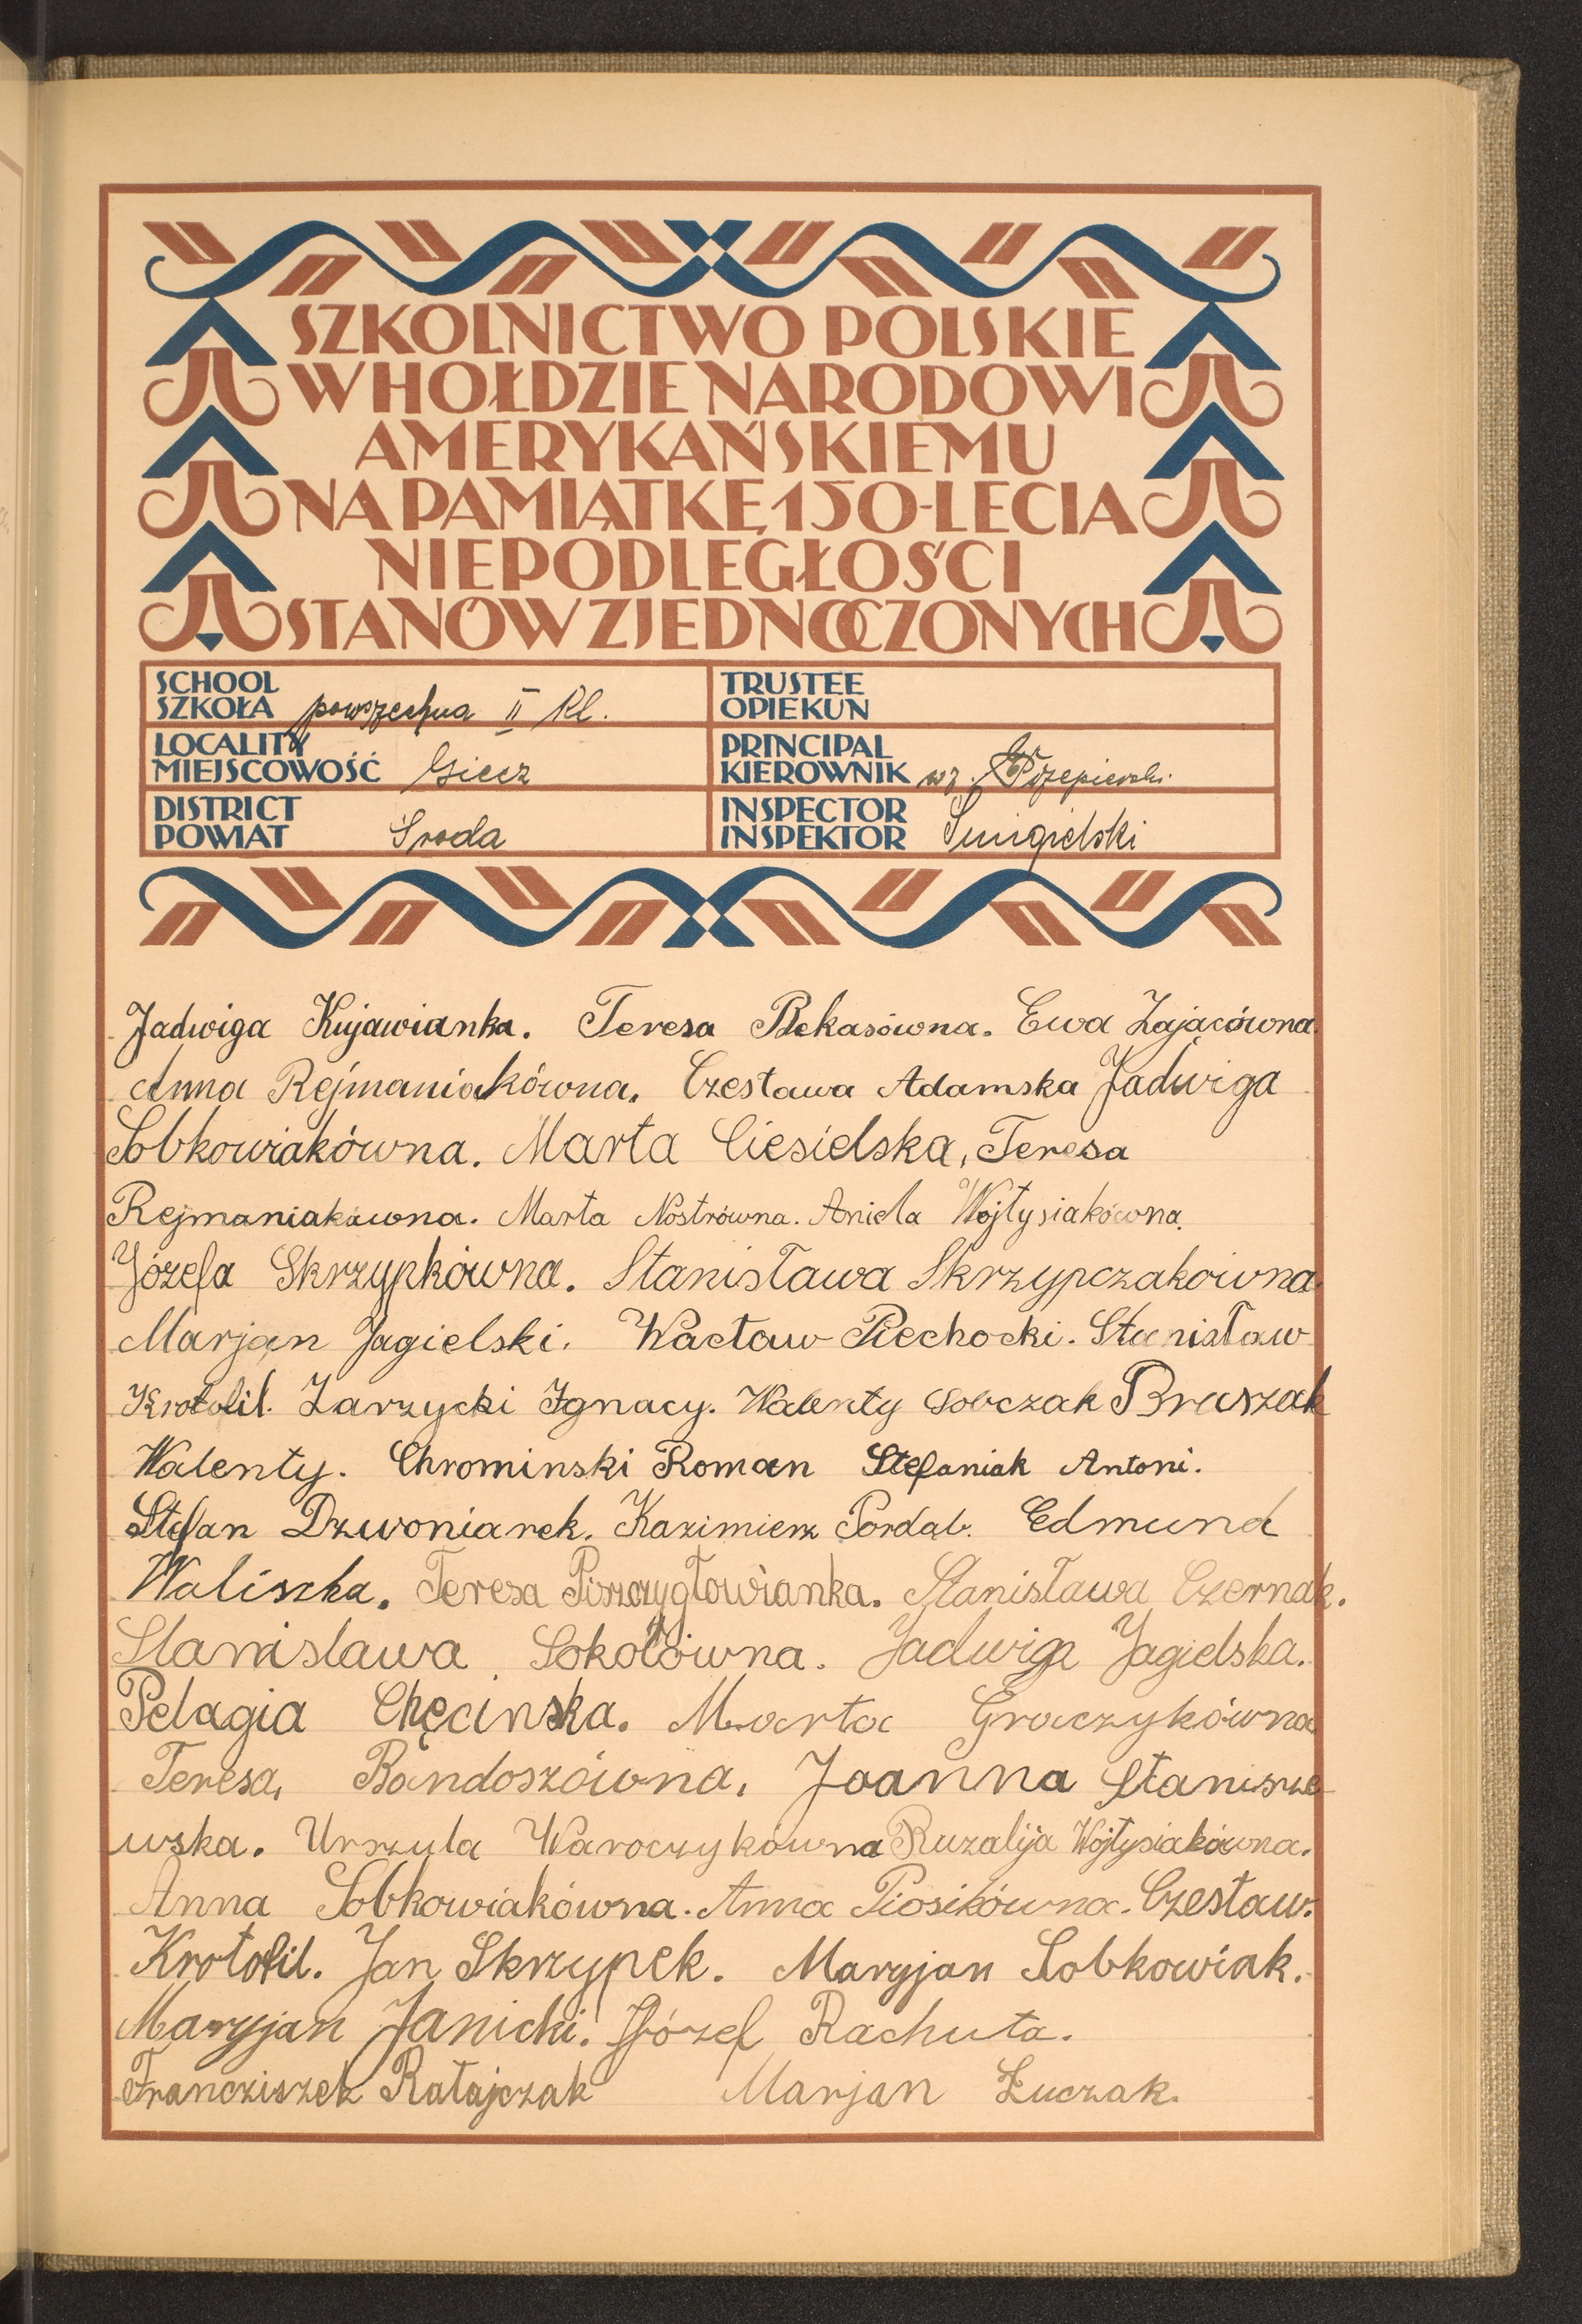 SZKOLNICTWO POLSKIE
W HOŁDZIE NARODOWI
AMERYKAŃSKIEMU
NA PAMIĄTKĘ 150-LECIA
NIEPODLEGŁOŚCI
STANÓW ZJEDNOCZONYCH
SCHOOL
SZKOŁA powszechna II kl.
TRUSTEE
OPIEKUN
LOCALITY
MIEJSCOWOŚĆ Giecz
PRINCIPAL
KIEROWNIK wz.
DISTRICT
POWIAT Środa
INSPECTOR
INSPEKTOR Śmigielski
Jadwiga Kujawianka. Teresa Bekasówna. Ewa Zającówna.
Anna Rejmaniakówna. Czesława Adamska Jadwiga
Sobkowiakówna. Marta Ciesielska, Teresa
Rejmaniakówna. Marta Nostrówna. Aniela Wojtysiakówna.
Józefa Skrzypkówna. Stanisława Skrzypczakówna.
Marjan Jagielski. Wacław Piechocki. Stanisław
Krotofil. Zarzycki Ignacy. Walenty Sobczak Braszak
Walenty. Chrominski Roman Stefaniak Antoni.
Stefan Dzwoniarek. Kazimierz Edmund
Waliszka. Teresa Stanisława Czernak.
Stanislawa Sokołówna. Jadwiga Jagielska.
Pelagia Chęcinska. Marta Graczykówna
Teresa, Bandoszówna. Joanna Stanisze
wska. Urszula Waroczykówna Ruzalija Wojtysiakówna.
Anna Sobkowiakówna. Anna Piosikówna. Czesław.
Krotofil. Jan Skrzypek. Maryjan Sobkowiak.
Maryjan Janicki. Józef Rachuta.
Francziszek Ratajczak Marjan Łuczak.